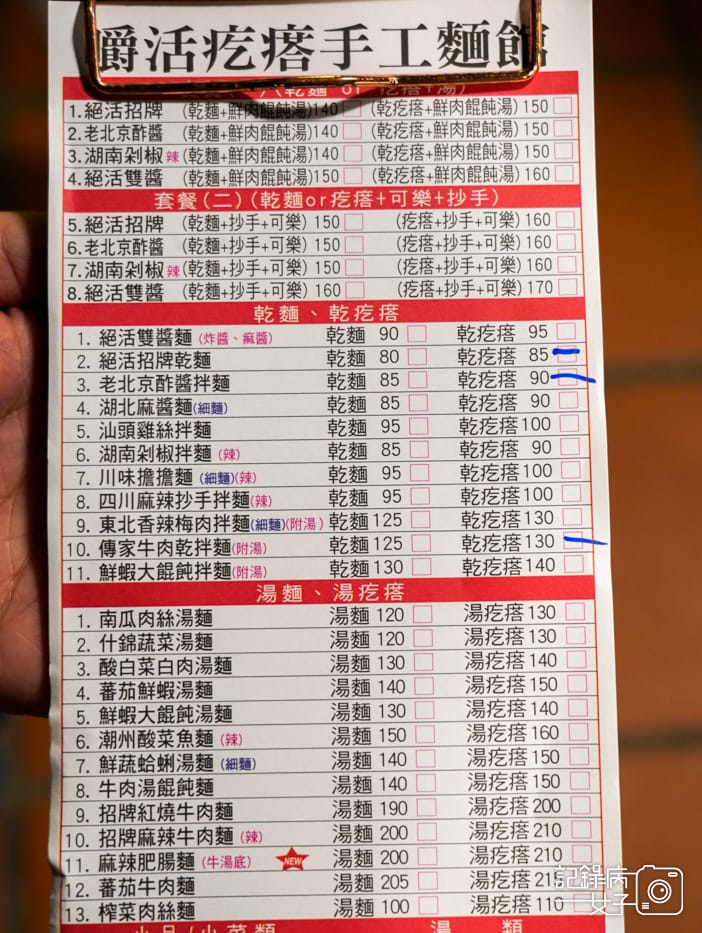 嚼活疙瘩手工麵館
(乾麵 or 疙瘩+湯)
1.絕活招牌 (乾麵+鮮肉餛飩湯)140 (乾疙瘩+鮮肉餛飩湯)150
2.老北京酢醬 (乾麵+鮮肉餛飩湯)140 (乾疙瘩+鮮肉餛飩湯)150
3.湖南剁椒辣(乾麵+鮮肉餛飩湯)140 (乾疙瘩+鮮肉餛飩湯)150
4.絕活雙醬 (乾麵+鮮肉餛飩湯)150 (乾疙瘩+鮮肉餛飩湯)160
套餐(二)(乾麵or疙瘩+可樂+抄手)
5.絕活招牌 (乾麵+抄手+可樂) 150 (疙瘩+抄手+可樂) 160
6.老北京酢醬 (乾麵+抄手+可樂) 150 (疙瘩+抄手+可樂) 160
7.湖南剁椒辣(乾麵+抄手+可樂) 150 (疙瘩+抄手+可樂) 160
8.絕活雙醬 (乾麵+抄手+可樂) 160 (疙瘩+抄手+可樂) 170
乾麵、乾疙瘩
1. 絕活雙醬麵 (炸醬、痲醬) 乾麵 90 乾疙瘩 95
2. 絕活招牌乾麵 乾麵 80 乾疙瘩 85
3. 老北京酢醬拌麵 乾麵 85 乾疙瘩 90
4. 湖北麻醬麵(細麵) 乾麵 85 乾疙瘩 90
5. 汕頭雞絲拌麵 乾麵 95 乾疙瘩100
6. 湖南剁椒拌麵 (辣) 乾麵 85 乾疙瘩 90
7. 川味擔擔麵 (細麵)(辣) 乾麵 95 乾疙瘩100
8. 四川麻辣抄手拌麵(辣) 乾麵 95 乾疙瘩100
9. 東北香辣梅肉拌麵(細麵)(附湯) 乾麵125 乾疙瘩130
10. 傳家牛肉乾拌麵(附湯) 乾麵125 乾疙瘩130
11. 鮮蝦大餛飩拌麵(附湯) 乾麵130 乾疙瘩140
湯麵、湯疙瘩
1. 南瓜肉絲湯麵 湯麵 120 湯疙瘩130
2. 什錦蔬菜湯麵 湯麵 120 湯疙瘩130
3. 酸白菜白肉湯麵 湯麵 130 湯疙瘩140
4. 蕃茄鮮蝦湯麵 湯麵 140 湯疙瘩150
5. 鮮蝦大餛飩湯麵 湯麵 130 湯疙瘩140
6. 潮州酸菜魚麵 (辣) 湯麵 150 湯疙瘩160
7. 鮮蔬蛤蜊湯麵 (細麵) 湯麵 140 湯疙瘩150
8. 牛肉湯餛飩麵 湯麵 140 湯疙瘩150
9. 招牌紅燒牛肉麵 湯麵 190 湯疙瘩200
10. 招牌麻辣牛肉麵 (辣) 湯麵 200 湯疙瘩210
11. 麻辣肥腸麵 (牛湯底) NEW 湯麵 200 湯疙瘩210
12. 蕃茄牛肉麵 湯麵 205 湯疙瘩215
13. 榨菜肉絲麵 湯麵 100 湯疙瘩110
小品/小菜類 湯 類
記錄病
女子